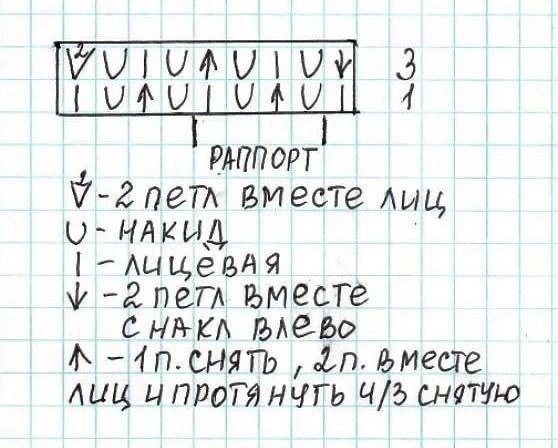 2
V U | U ↑ U | U ↓ 3
| U ↑ U | U ↑ U | 1
РАППОРТ
2
V - 2 ПЕТЛ ВМЕСТЕ ЛИЦ
U - НАКИД
| - ЛИЦЕВАЯ
↓ - 2 ПЕТЛ ВМЕСТЕ
С НАКЛ ВЛЕВО
↑ - 1 П. СНЯТЬ, 2 П. ВМЕСТЕ
ЛИЦ И ПРОТЯНУТЬ Ч/З СНЯТУЮ